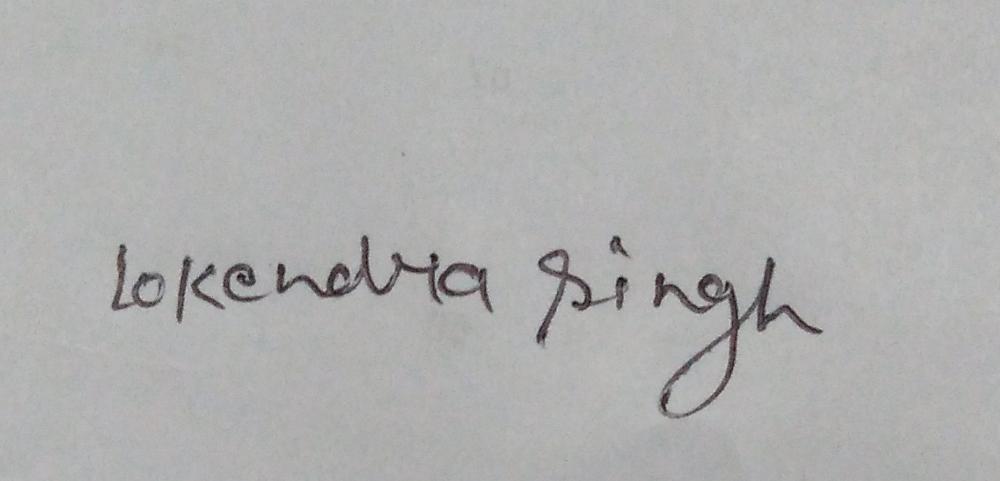 Lokendra Singh